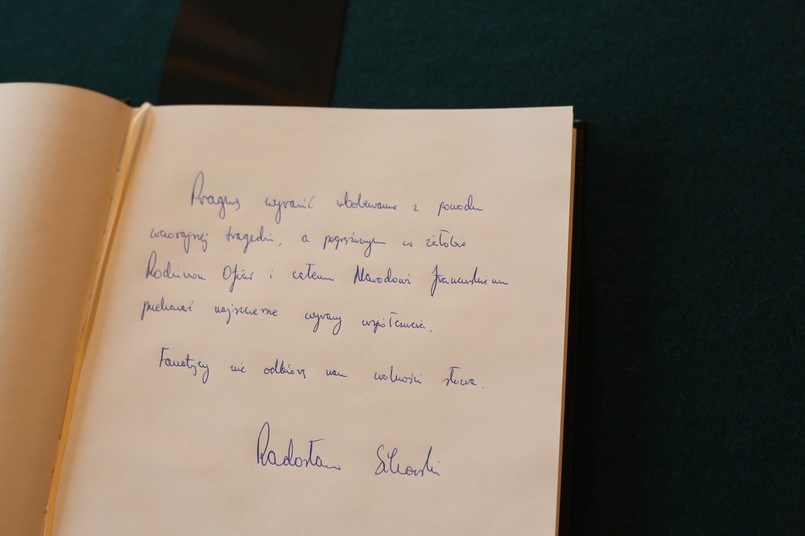 Pragnę wyrazić ubolewanie z powodu
wczorajszej tragedii, a pogrążonym w żałobie
Rodzinom Ofiar i całemu Narodowi francuskiemu
przekazać najszczersze wyrazy współczucia.
Fanatycy nie odbiorą nam wolności słowa.
Radosław Sikorski